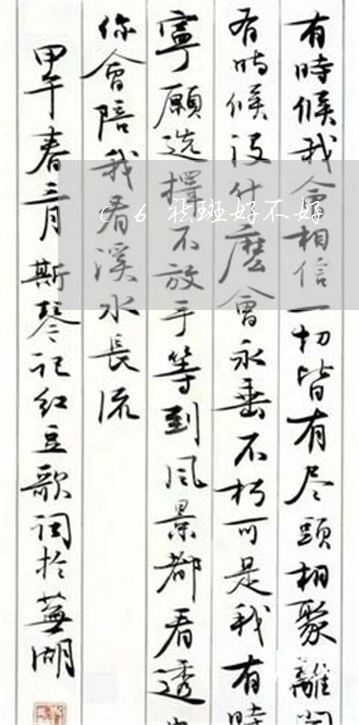 有時候我會相信一切皆有尽頭相聚離開
有時候沒什麼會永垂不朽可是我有時
寧願选擇不放手等到风景都看透
你會陪我看溪水長流
甲午春三月斯琴记红豆歌词於蕪湖
c 6 祛斑好不好